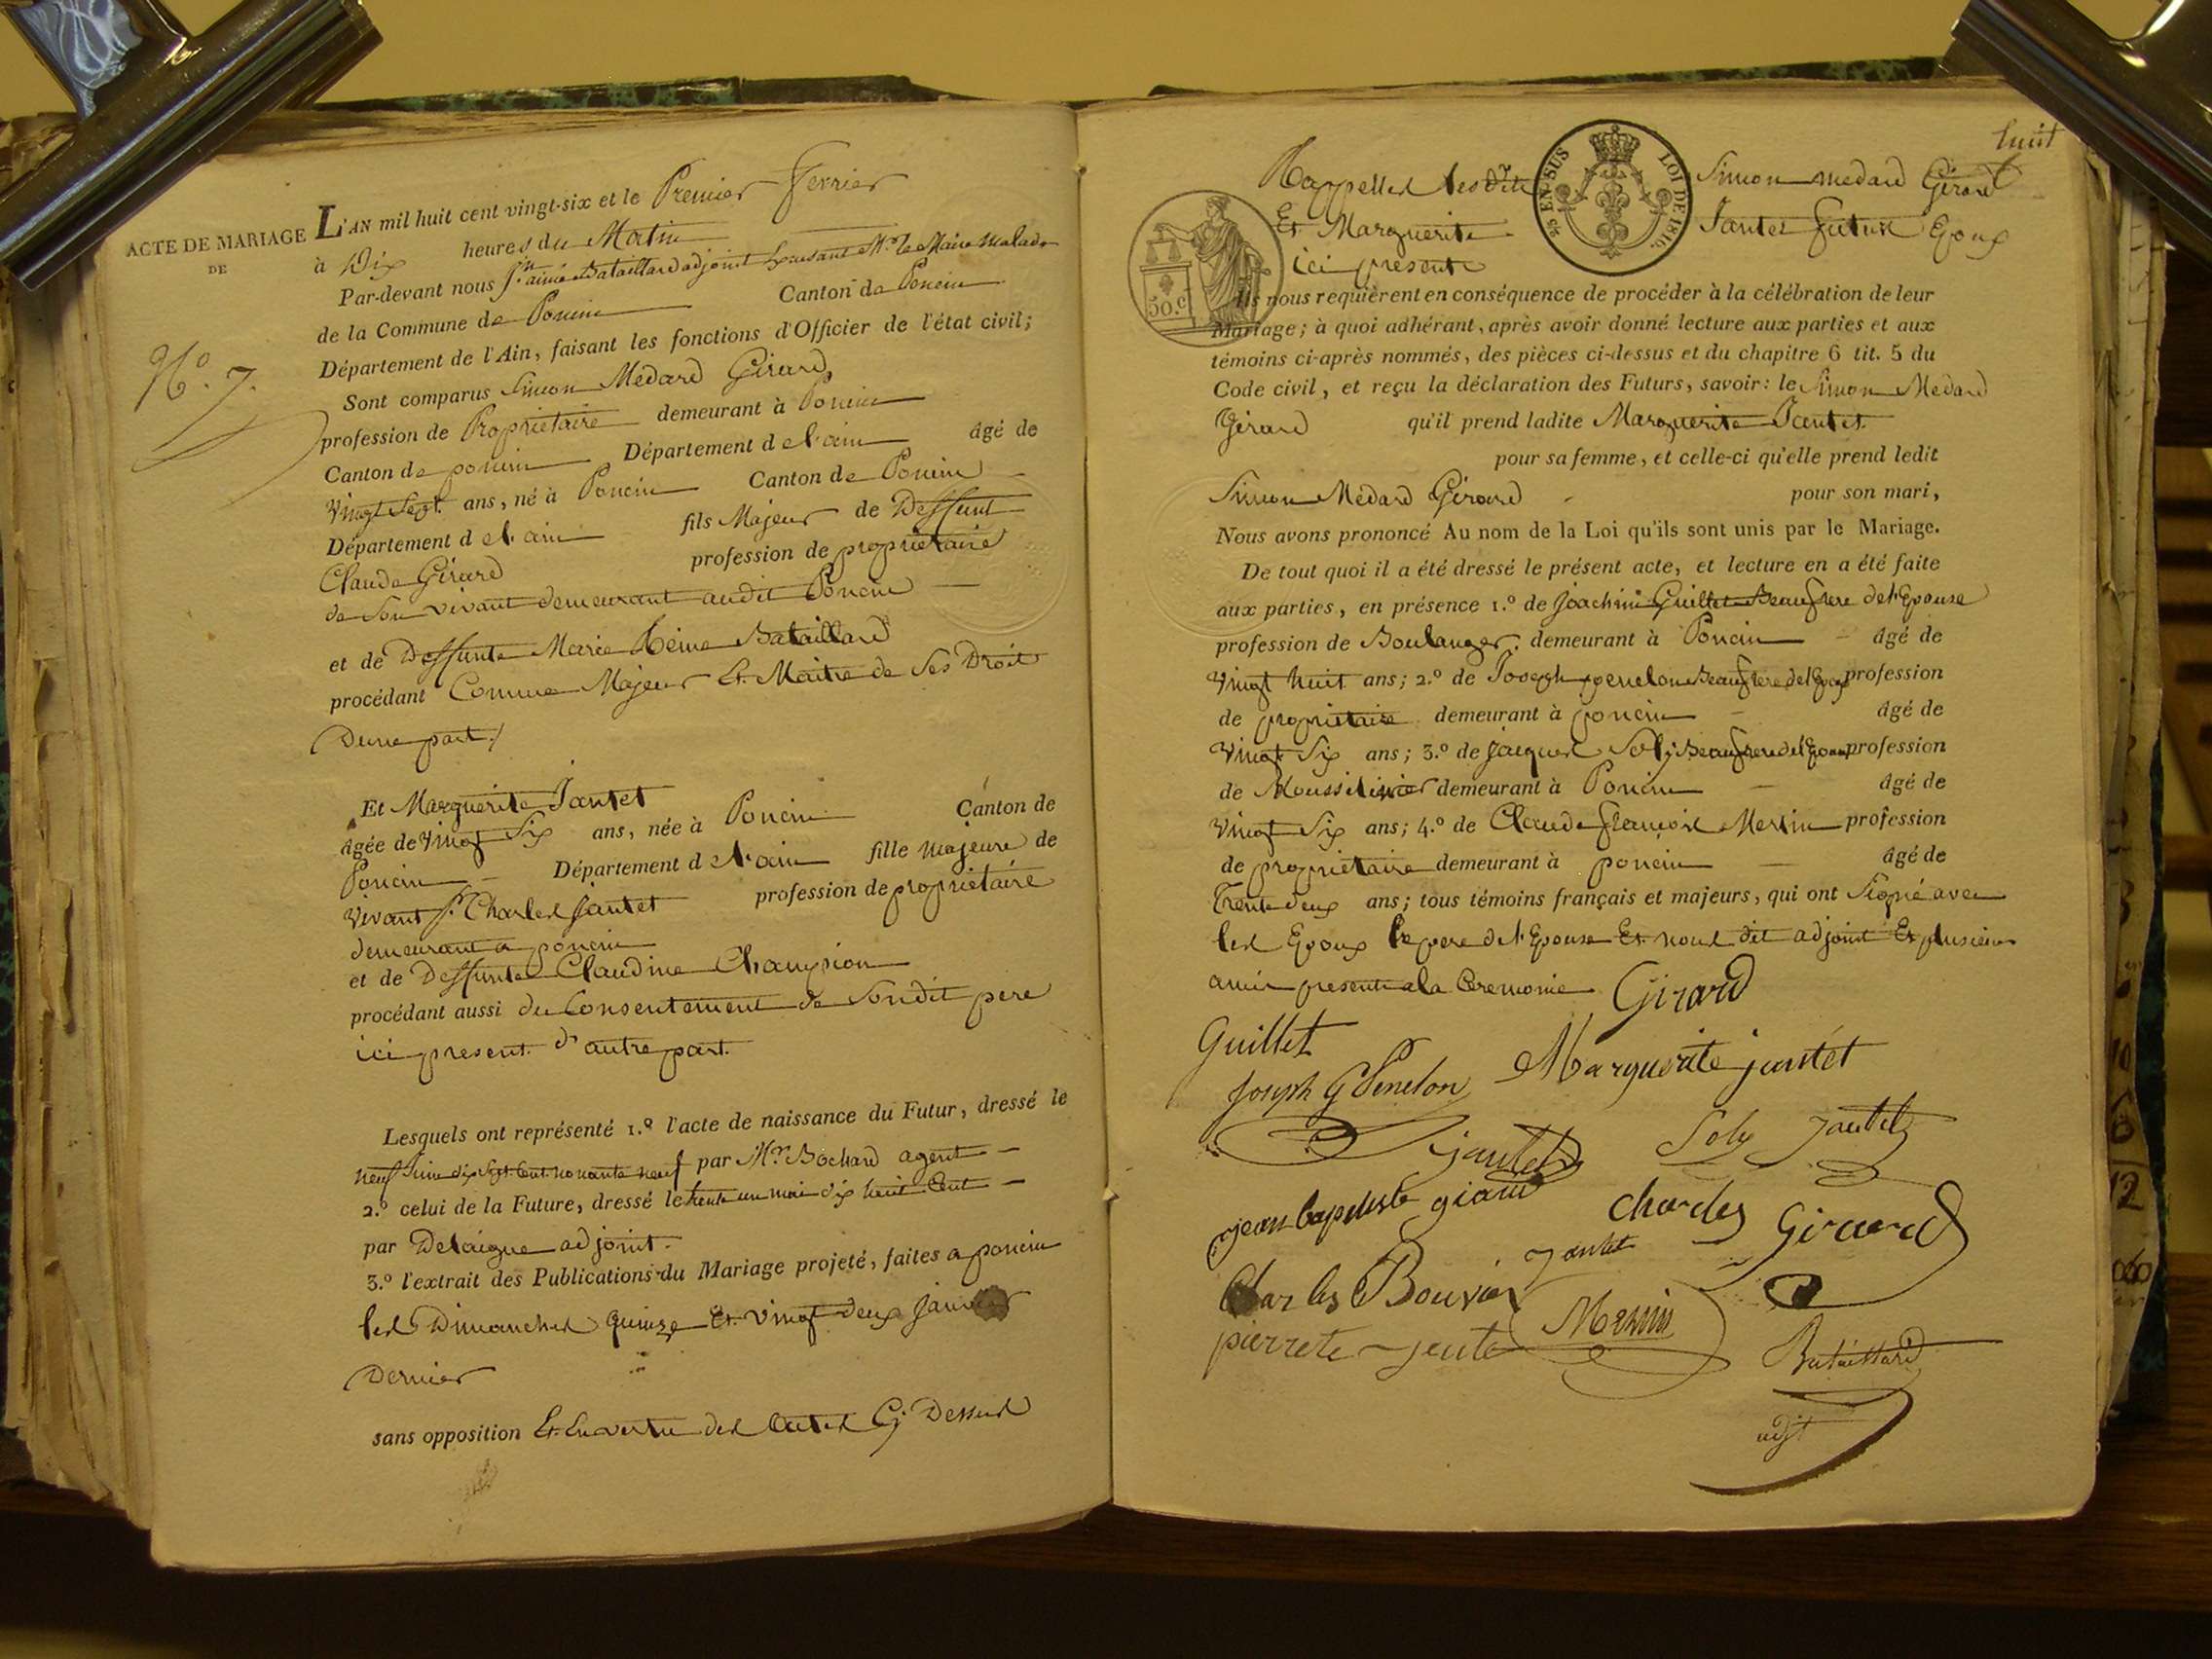 ACTE DE MARIAGE
DE
N.º 7.
L'AN mil huit cent vingt-six et le Premier fevrier
à Dix heures du Matin
Par-devant nous J.n aimé Bataillard adjoint M.r le Maire malade
de la Commune de Poncin Canton de Poncin
Département de l'Ain, faisant les fonctions d'Officier de l'état civil;
Sont comparus Simon Médard Girard
profession de Propriétaire demeurant à Poncin
Canton de poncin Département de l'ain âgé de
vingt Sept ans, né à Poncin Canton de Poncin
Département de l'ain fils Majeur de Deffunt
Claude Girard profession de propriétaire
de Son vivant demeurant audit Poncin
et de Deffunte Marie Reine Bataillard
procédant Comme Majeur Et Maitre de Ses Droit
D'une part /
Et Marguerite Jantet
âgée de vingt Six ans, née à Poncin Canton de
Poncin Département de l'ain fille majeure de
vivant S.r Charles Jantet profession de propriétaire
demeurant a poncin
et de Deffunte Claudine Champion
procédant aussi du Consentement de Sondit pere
ici present d'autre part.
Lesquels ont représenté 1.º l'acte de naissance du Futur, dressé le
neuf Juin dix Sept Cent nonante neuf par M.r Bochard agent
2.º celui de la Future, dressé le trente un mai dix huit Cent
par Delaigue adjoint.
3.º l'extrait des Publications du Mariage projeté, faites a poncin
les Dimanches quinze Et vingt deux Janvier
Dernier
sans opposition Et En vertu des Actes Cy Dessus
huit
Rappelles lesdits Simon medard Girard
Et Marguerite Jantet futur Epoux
ici present
50.c
EN SUS LOI DE 1816.
Ils nous requièrent en conséquence de procéder à la célébration de leur
Mariage; à quoi adhérant, après avoir donné lecture aux parties et aux
témoins ci-après nommés, des pièces ci-dessus et du chapitre 6 tit. 5 du
Code civil, et reçu la déclaration des Futurs, savoir: le Simon Medard
Girard qu'il prend ladite Marguerite Jantet
pour sa femme, et celle-ci qu'elle prend ledit
Simon Médard Girard pour son mari,
Nous avons prononcé Au nom de la Loi qu'ils sont unis par le Mariage.
De tout quoi il a été dressé le présent acte, et lecture en a été faite
aux parties, en présence 1.º de Joachim Guillet Beaufrere de l'Epouse
profession de Boulanger demeurant à Poncin âgé de
vingt huit ans; 2.º de Joseph genelon Beaufrere de l'Epoux profession
de propriétaire demeurant à poncin âgé de
vingt Six ans; 3.º de Jacques Soly Beaufrere de l'Epoux profession
de demeurant à Poncin âgé de
vingt Six ans; 4.º de Claude françois Mermin profession
de propriétaire demeurant à poncin âgé de
Trente deux ans; tous témoins français et majeurs, qui ont Signé avec
les Epoux le pere de l'Epouse Et nous dit adjoint Et plusieurs
amis present a la Ceremonie Girard
Guillet
Joseph G Penelon Marguerite jantet
jantet Soly Jantet
jean baptiste giard Charles Girard
Jantet
Charles Bouvier
Mermin
pierrete Jente Bataillard
adjt